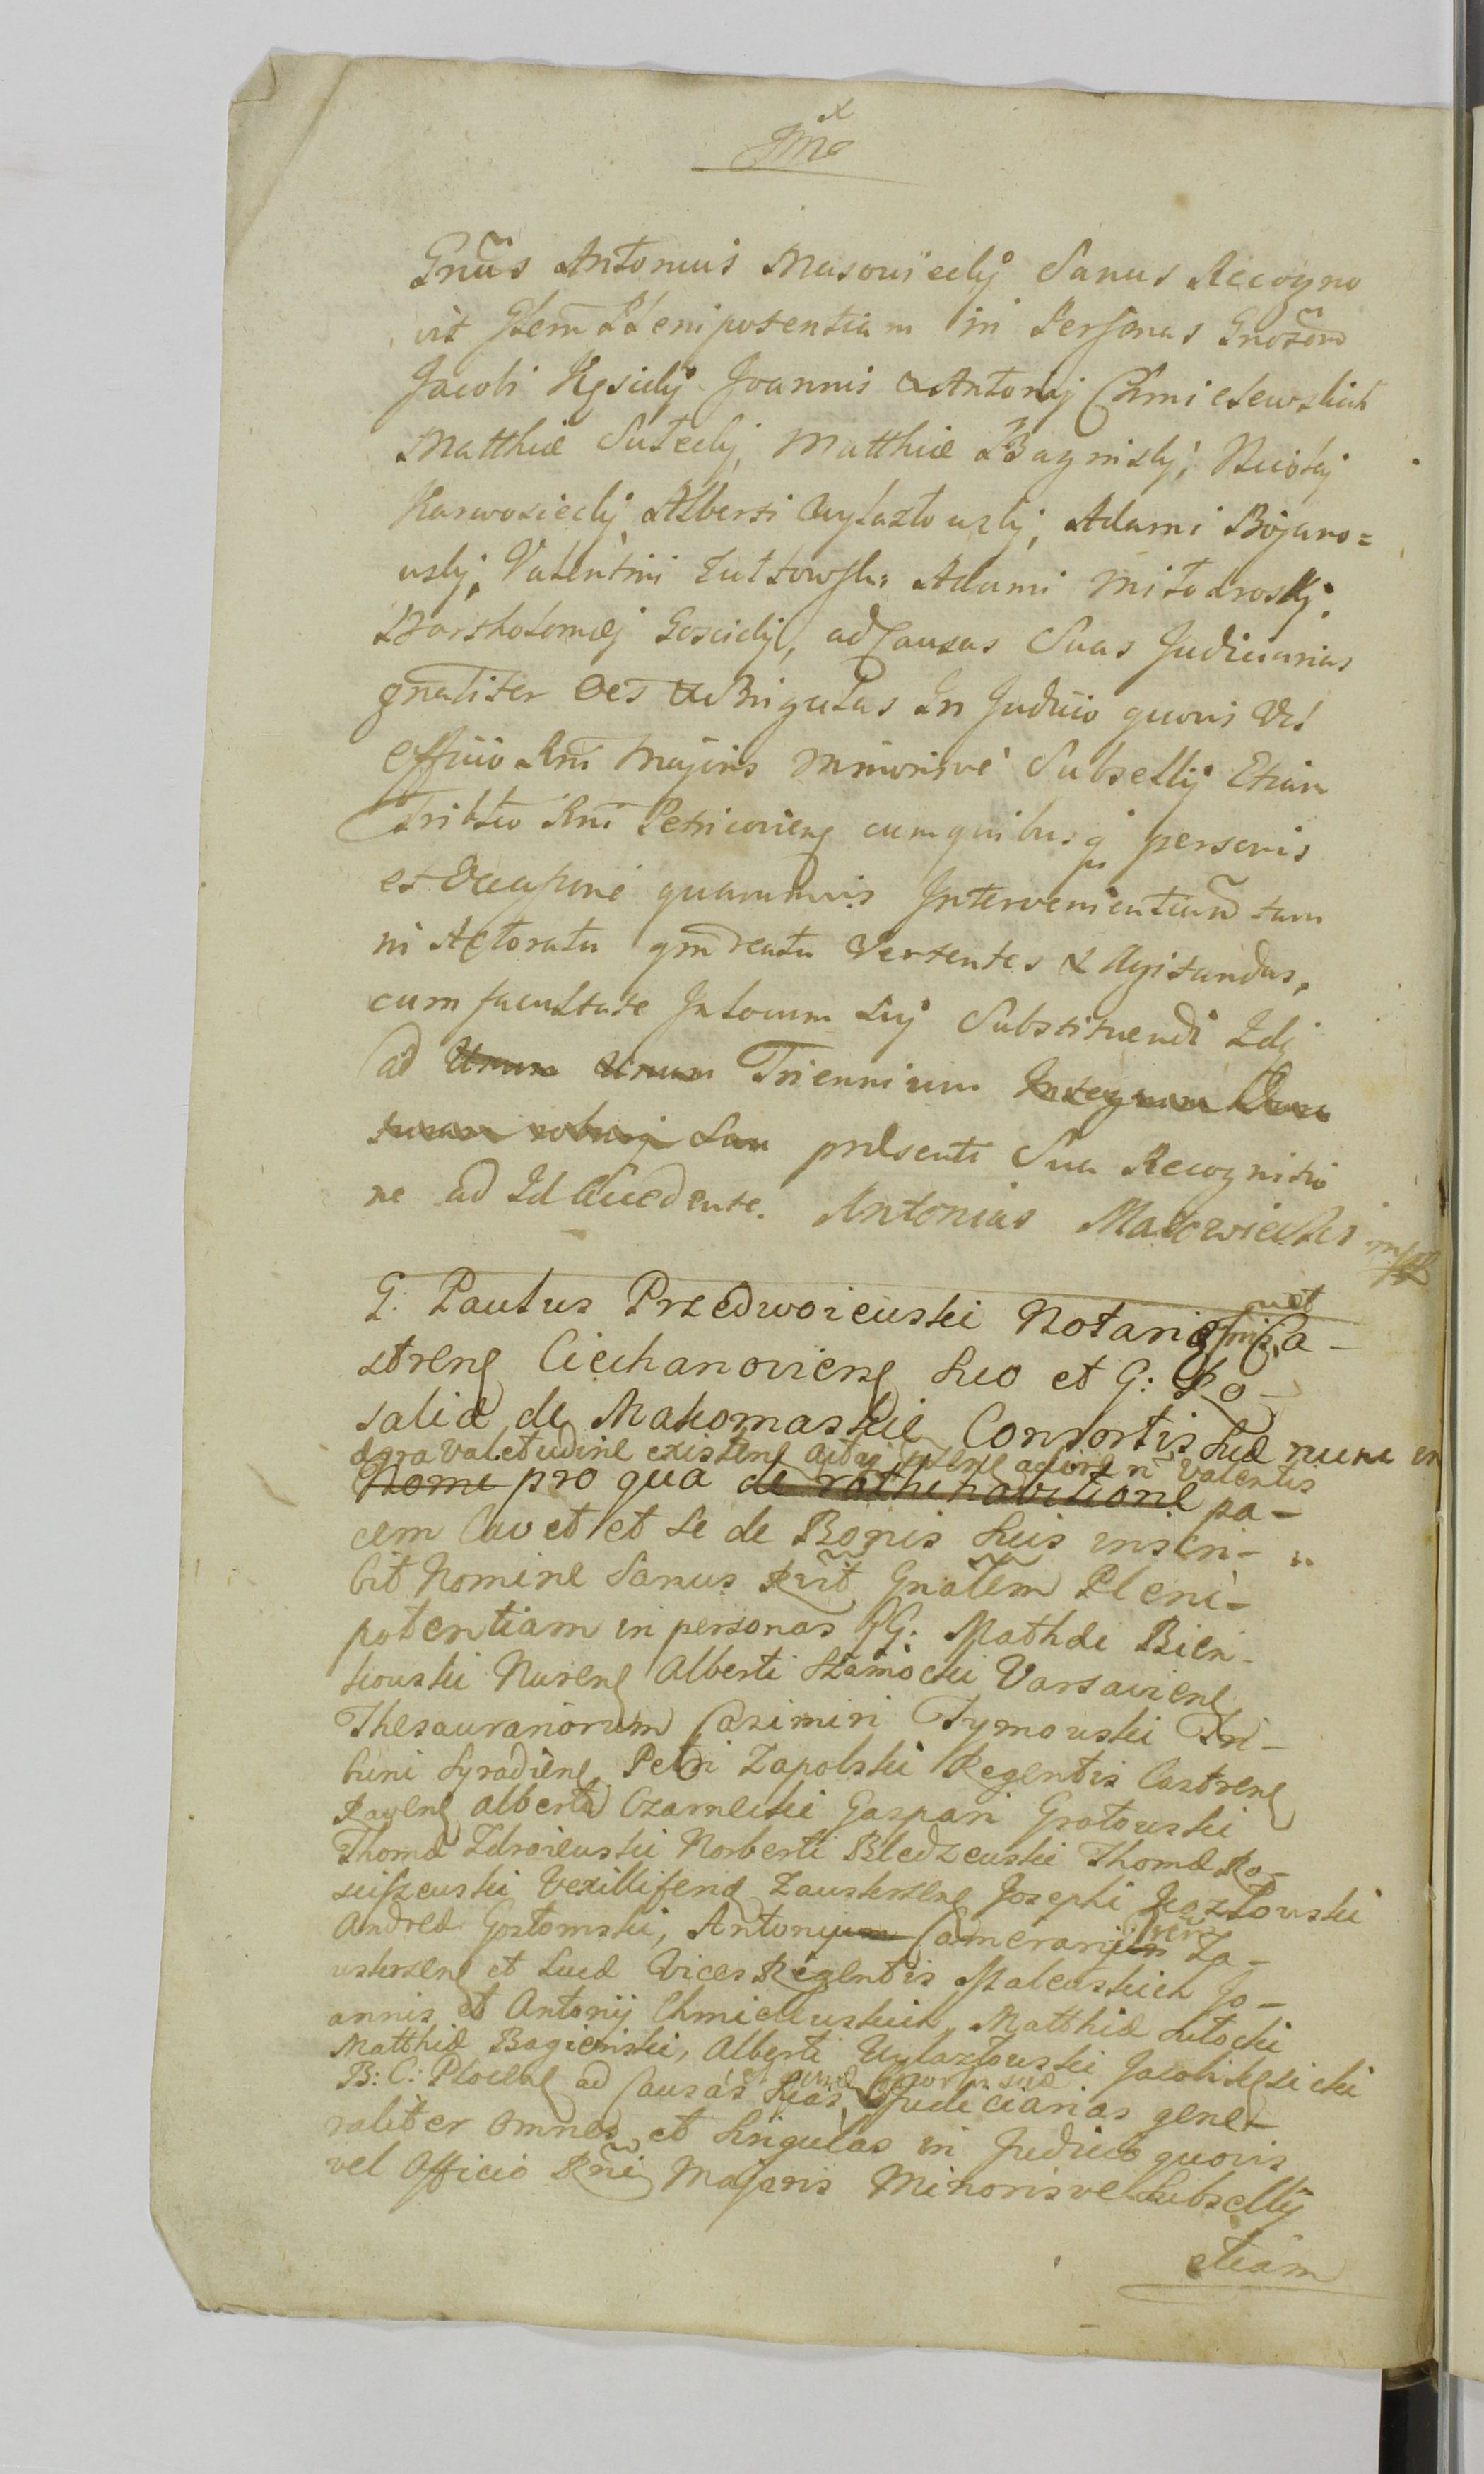 Gnũs Antonius Masowiecky Sanus Recogno
vit Glem Plenipotentiam in Personas Gnosorum
Jacobi Kęsicky Joannis & Antonij Chmielewskich
Matthiæ Sutecky, Matthiæ Bagynisky,
Karwosiecky, Alberti Uylaztowsky, Adami Bojano=
wsky, Valentini Zultowsky Adami Milodrosky.
Bartholomæj Goscicky, ad Causas Suas Judiciarias
gnaliter Oes & Singulas In Judicio quovis Vel
Officio Rni Majoris Minorisve Subsellij Etiam
Tribli Rni Petricovien cum quibusq personis
et Occasione quarumvis Intervenientium tam
in Actoratu qm reatu Vertentes & Agitandas,
cum facultate In locum Sui Substituendi
ad Unum unum Triennium Integrum
præsenti Sua Recognitio
ne ad Id Accedente. Antonius Masowiecki mpp
G. Paulus Przedwoiewski Notarius Ca-
strens Ciechanoviens suo et G: Ro-
salia de Makomaskie Consortis Suæ nunc in
ægra valetudine existens actui præsenti adire n valentis
Nome pro qua de rathihabitione pa-
cem Cavet et se de Bonis suis inscri-
bit Nomine Sanus Rvit Gnalem Pleni-
potentiam in personas GG: Mathæi Bien-
kowski Nurens Alberti Szamocki Varsaviens
Thesaurariorum Casimiri Tymowski Tri-
buni Syradiens Petri Zapolski Regentis Castrens
Ravens Alberti Czarnecki Gaspari Grotowski
Thomæ Zdroiewski Norberti Bledzewski Thomæ Ro-
sciszewski Vexilliferid Zawskrzens Josephi Kozlowski
Andreæ Gostomski, Antonij Camerarij Za-
wskrzens et Lucæ Vices Regentis Malewskich Jo-
annis et Antonij Chmielewskich, Matthiæ Sutocki
Matthiæ Bagienski, Alberti Uylaztowski Jacobi Kęsicki
B: C: Plocens ad Causas Suas Judiciarias gene-
raliter Omnes et Singulas in Judicio quovis
vel Officio Rni Majoris Minorisve Subsellij
etiam